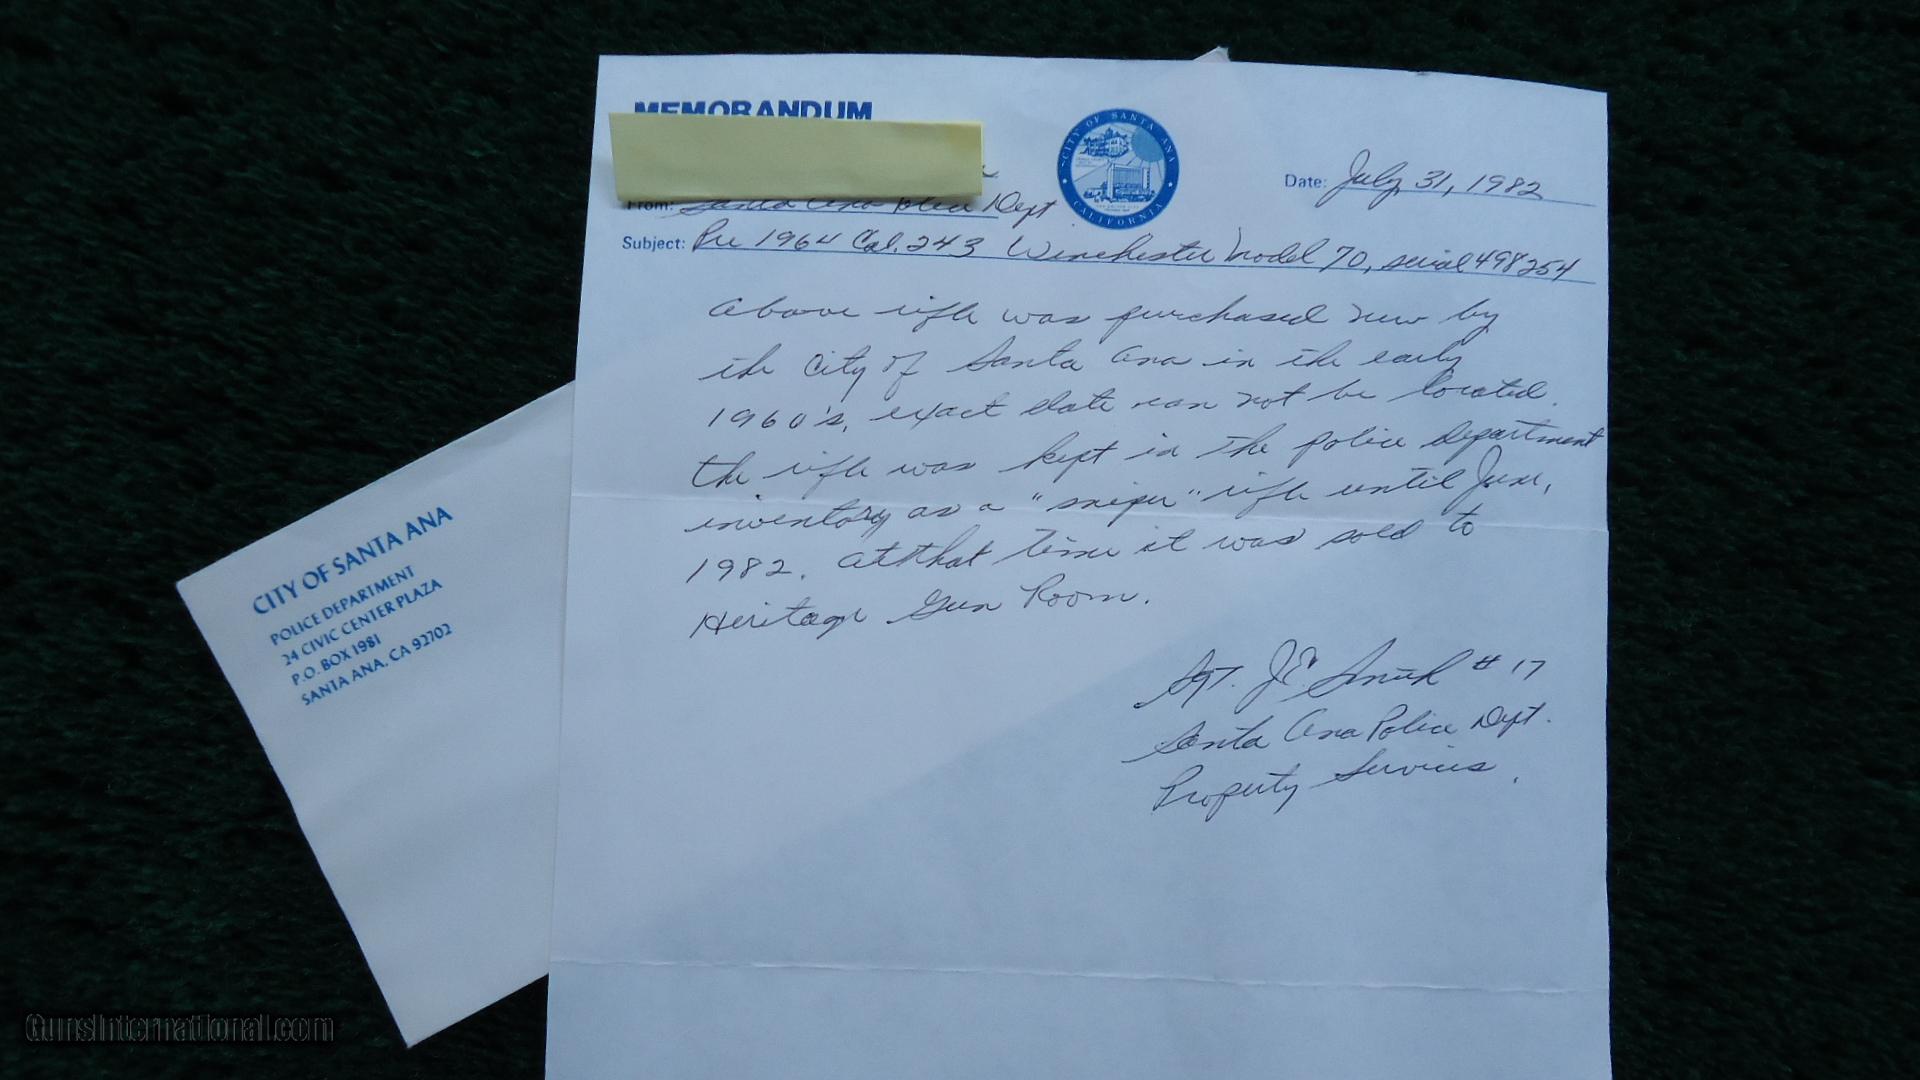 MEMORANDUM
CITY OF SANTA ANA
CALIFORNIA
Date: July 31, 1982
From: Santa Ana Police Dept
Subject: Pre 1964 Cal. 243 Winchester Model 70, serial 498254
Above rifle was purchased new by
the City of Santa Ana in the early
1960's, exact date can not be located.
The rifle was kept in the police department
inventory as a "sniper" rifle until June,
1982. At that time it was sold to
Heritage Gun Room.
Sgt. J.E. Smith #17
Santa Ana Police Dept.
Property Services.
CITY OF SANTA ANA
POLICE DEPARTMENT
24 CIVIC CENTER PLAZA
P.O. BOX 1981
SANTA ANA, CA 92702
GunsInternational.com